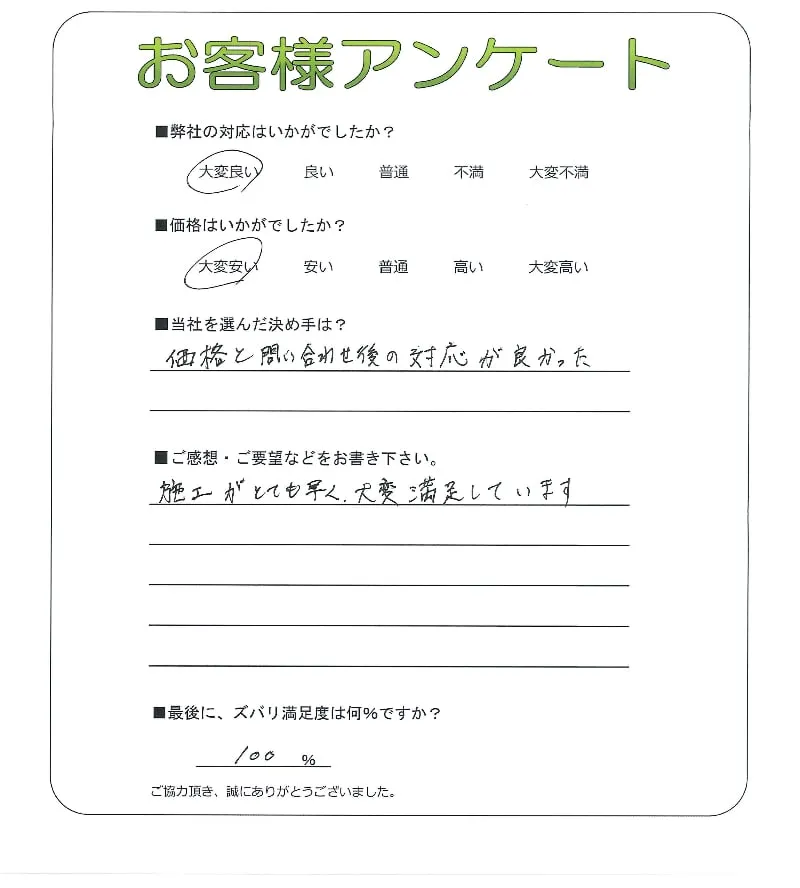 お客様アンケート
■弊社の対応はいかがでしたか？
大変良い 良い 普通 不満 大変不満
■価格はいかがでしたか？
大変安い 安い 普通 高い 大変高い
■当社を選んだ決め手は？
価格と問い合わせ後の対応が良かった
■ご感想・ご要望などをお書き下さい。
施工がとても早く、大変満足しています
■最後に、ズバリ満足度は何％ですか？
100 ％
ご協力頂き、誠にありがとうございました。